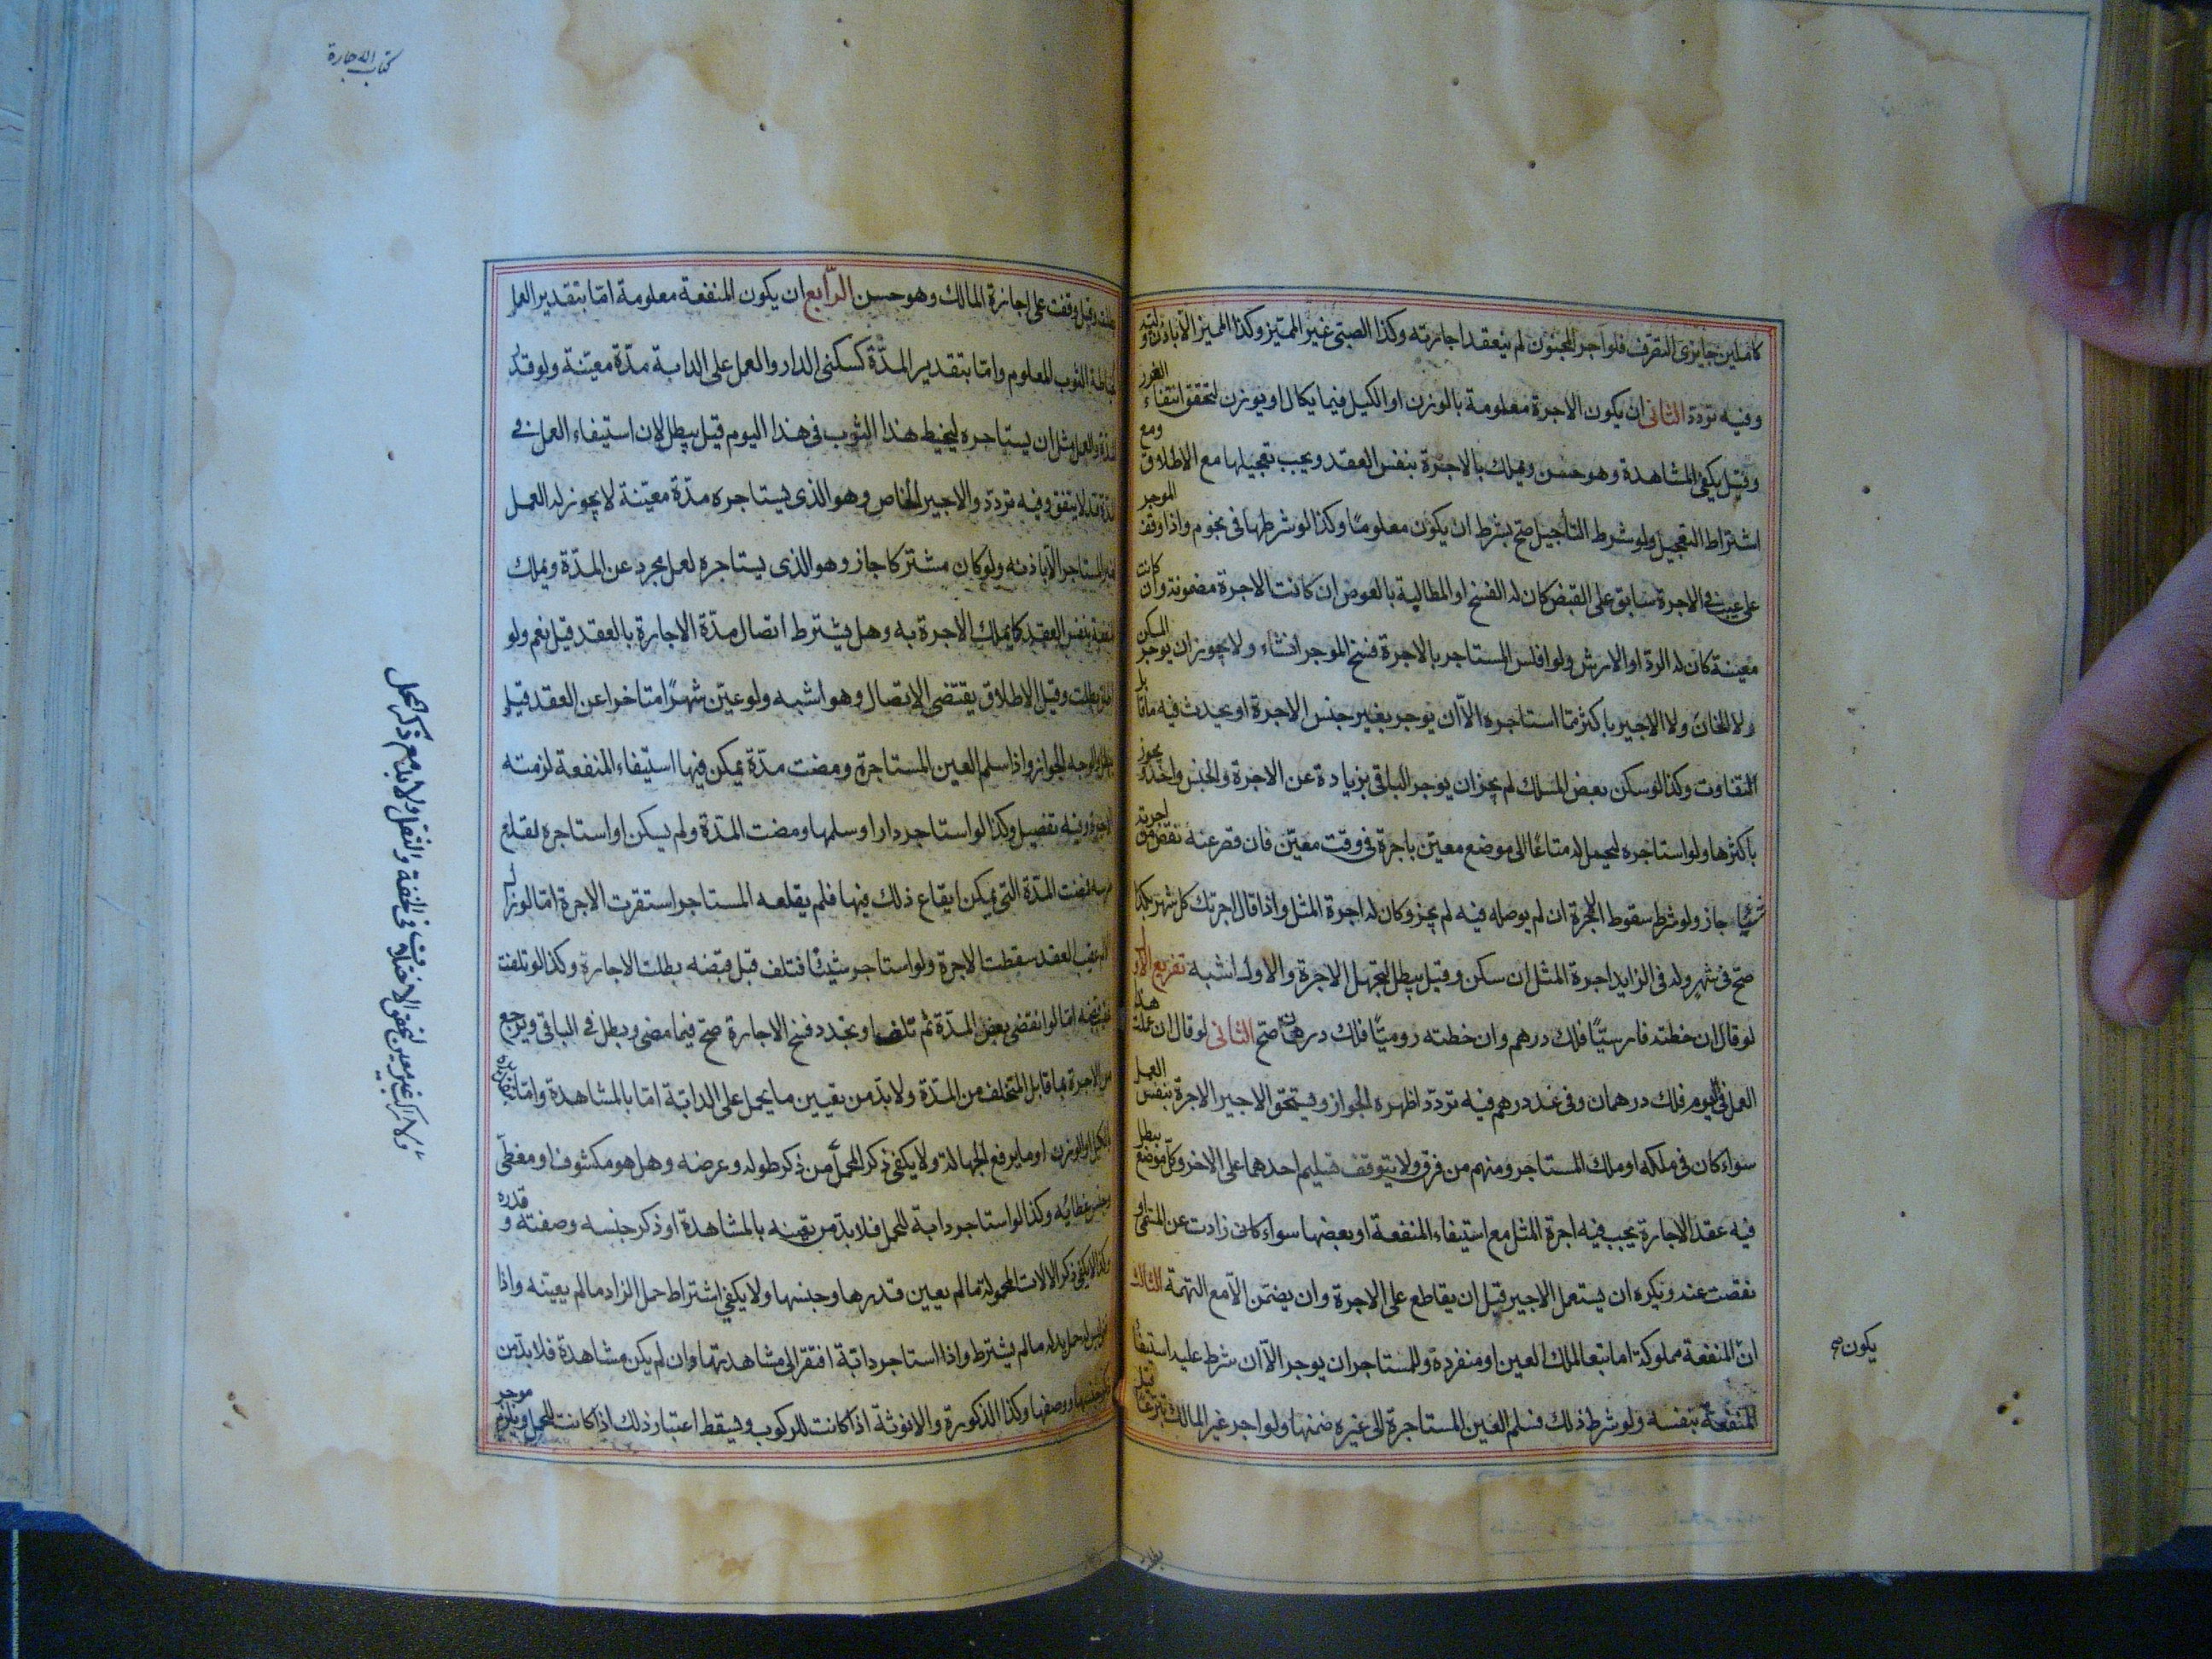 كاملين جايزى التصرف فلو آجر المجنون لم ينعقد اجارته وكذا الصبى غير المميز وكذا المميز الا باذن وليه
وفيه تردد الثانى ان يكون الاجرة معلومة بالوزن او الكيل فيما يكال او يوزن لتحقق انتفاء الغرر
وقيل يكفى المشاهدة وهو حسن ويملك بالاجرة بنفس العقد ويجب تعجيلها مع الاطلاق ومع
اشتراط التعجيل ولو شرط التأجيل صح بشرط ان يكون معلومًا وكذا لو شرطها فى نجوم واذا وقف الموجر
على عيب فى الاجرة سابق على القبض كان له الفسخ او المطالبة بالعوض ان كانت الاجرة مضمونة وان كانت
معينة كان له الرد او الارش ولو افلس المستاجر بالاجرة فسخ الموجر انشاء ولا يجوز ان يوجر المسكن
ولا الخان ولا الاجير باكثر مما استاجره الا ان يوجر بغير جنس الاجرة او يحدث فيه ما
التفاوت وكذا لو سكن بعض المسلك لم يجز ان يوجر الباقى بزيادة عن الاجرة والجنس واحد ويجوز
باكثرها ولو استاجره ليحمل له متاعًا الى موضع معين باجرة فى وقت معين فان قصر عنه نقص من اجرته
شيئًا جاز ولو شرط سقوط الاجرة ان لم يوصله فيه لم يجز وكان له اجرة المثل واذا قال اجرتك كل شهر بكذا
صح فى شهر وله فى الزايد اجرة المثل ان سكن وقيل يبطل لتجهل الاجرة والاول اشبه تفريع الاول
لو قال ان خطته فارسيًا فلك درهم وان خطته روميًا فلك درهمان صح الثانى لو قال ان عملت هذا
العمل فى اليوم فلك درهمان وفى غد درهم فيه تردد اظهره الجواز ويستحق الاجير الاجرة بنفس العمل
سواء كان فى ملكه او ملك المستاجر ومنهم من فرق ولا يتوقف تسليم احدهما على الاخر وكل موضع يبطل
فيه عقد الاجارة يجب فيه اجرة المثل مع استيفاء المنفعة او بعضها سواء كانى زادت عن المسمى او
نقصت عنه ويكره ان يستعمل الاجير قبل ان يقاطع على الاجرة وان يضمن الا مع التهمة الثالث
ان المنفعة مملوكة اما تبعا لملك العين او منفردة وللمستاجر ان يوجر الا ان شرط عليه استيفاء
يكون
المنفعة بنفسه ولو شرط ذلك فسلم العين المستاجرة الى غيره ضمنها ولو اجر غير المالك تبرعًا قيل
بطلت
كتاب الاجارة
بطلت وقيل وقفت على اجازة المالك وهو حسن الرابع ان يكون المنفعة معلومة اما بتقدير العمل
كخياطة الثوب المعلوم واما بتقدير المدة كسكنى الدار والعمل على الدابة مدة معينة ولو قدر
المدة والعمل مثل ان يستاجره ليخيط هذا الثوب فى هذا اليوم قيل يبطل لان استيفاء العمل فى
المدة قد لا يتفق وفيه تردد والاجير الخاص وهو الذى يستاجره مدة معينة لا يجوز له العمل
لغير المستاجر الا باذنه ولو كان مشتركا جاز وهو الذى يستاجره لعمل مجرد عن المدة ويملك
المنفعة بنفس العقد كما يملك الاجرة به وهل يشترط اتصال مدة الاجارة بالعقد قيل نعم ولو
اطلق بطلت وقيل الاطلاق يقتضى الاتصال وهو اشبه ولو عين شهرًا متاخرا عن العقد قيل
يبطل والوجه الجواز واذا سلم العين المستاجرة ومضت مدة يمكن فيها استيفاء المنفعة لزمته
الاجرة وفيه تفصيل وكذا لو استاجر دارا وسلمها ومضت المدة ولم يسكن او استاجره لقلع
ضرسه فمضت المدة التى يمكن ايقاع ذلك فيها فلم يقلعه المستاجر استقرت الاجرة اما لو زال
الم عقيب العقد سقطت الاجرة ولو استاجر شيئًا فتلف قبل قبضه بطلت الاجارة وكذا لو تلفت
عقيب قبضه اما لو انقضى بعض المدة ثم تلف او تجدد فسخ الاجارة صح فيما مضى وبطل فى الباقى ويرجع
من الاجرة بما قابل المتخلف من المدة ولا بد من تعيين ما يحمل على الدابة اما بالمشاهدة واما بتقديره
بالكيل او الوزن او ما يرفع الجهالة ولا يكفى ذكر المحمل من ذكر طوله وعرضه وهل هو مكشوف او مغطى
وجنس غطائه وكذا لو استاجر دابة للحمل فلا بد من تعينه بالمشاهدة او ذكر جنسه وصفته و قدره
وكذا لا يكفى ذكر الالات المحمولة ما لم يعين قدرها وجنسها ولا يكفى اشتراط حمل الزاد ما لم يعينه واذا
فنى ليس له حمل بدله ما لم يشترط واذا استاجر دابة افتقر الى مشاهدتها وان لم يكن مشاهدة فلا بد من
ذكر جنسها ووصفها وكذا الذكورة والانوثة اذا كانت للركوب ويسقط اعتبار ذلك اذا كانت للحمل ويلزم موجر
ولا راكب غير معين لتحقق الاختلاف فى الخفة والثقل ولا بد مع ذكر المحمل